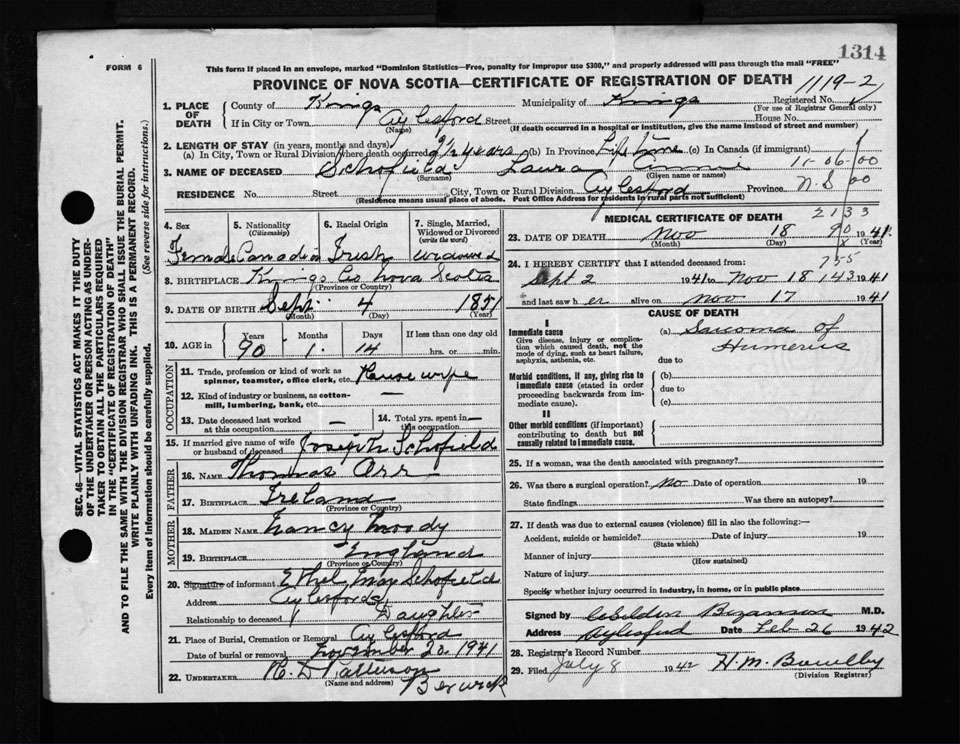 1314
FORM 6
This form if placed in an envelope, marked "Dominion Statistics—Free, penalty for improper use $300," and properly addressed will pass through the mail "FREE"
PROVINCE OF NOVA SCOTIA—CERTIFICATE OF REGISTRATION OF DEATH
1119-2
1. PLACE OF DEATH
County of Kings Municipality of Kings Registered No.
(For use of Registrar General only)
If in City or Town Aylesford Street House No.
(Name) (If death occurred in a hospital or institution, give the name instead of street and number)
2. LENGTH OF STAY (in years, months and days)
(a) In City, Town or Rural Division where death occurred years (b) In Province Life time (c) In Canada (if immigrant)
3. NAME OF DECEASED Schofield Laura Annie 11-06-00
(Surname) (Given name or names)
RESIDENCE No. Street City, Town or Rural Division Aylesford Province N.S 00
(Residence means usual place of abode. Post Office Address for residents in rural parts not sufficient)
4. Sex Female
5. Nationality (Citizenship) Canadian
6. Racial Origin Irish
7. Single, Married, Widowed or Divorced (write the word) Widowed
8. BIRTHPLACE Kings Co Nova Scotia
(Province or Country)
9. DATE OF BIRTH Sept 4 1851
(Month) (Day) (Year)
10. AGE in Years Months Days If less than one day old
90 1 14 hrs. or min.
OCCUPATION
11. Trade, profession or kind of work as spinner, teamster, office clerk, etc. House wife
12. Kind of industry or business, as cotton-mill, lumbering, bank, etc. —
13. Date deceased last worked at this occupation —
14. Total yrs. spent in this occupation —
15. If married give name of wife or husband of deceased Joseph Schofield
FATHER
16. NAME Thomas Orr
17. BIRTHPLACE Ireland
(Province or Country)
MOTHER
18. MAIDEN NAME Nancy Moody
19. BIRTHPLACE England
(Province or Country)
20. Signature of informant Ethel May Schofield
Address Aylesford
Relationship to deceased Daughter
21. Place of Burial, Cremation or Removal Aylesford
Date of burial or removal November 20 1941
22. UNDERTAKER R. D Patterson
(Name and address) Berwick
MEDICAL CERTIFICATE OF DEATH
2133
23. DATE OF DEATH Nov 18 90 1941
(Month) (Day) X (Year)
755
24. I HEREBY CERTIFY that I attended deceased from:
Sept 2 1941 to Nov 18 143 1941
and last saw h er alive on Nov 17 1941
CAUSE OF DEATH
I
Immediate cause
Give disease, injury or complication which caused death, not the mode of dying, such as heart failure, asphyxia, asthenia, etc.
(a) Sarcoma of Humerus
due to
Morbid conditions, if any, giving rise to immediate cause (stated in order proceeding backwards from immediate cause).
(b)
due to
(c)
II
Other morbid conditions (if important) contributing to death but not causally related to immediate cause.
25. If a woman, was the death associated with pregnancy?
26. Was there a surgical operation? No Date of operation 19
State findings Was there an autopsy?
27. If death was due to external causes (violence) fill in also the following:—
Accident, suicide or homicide? Date of injury 19
(State which)
Manner of injury
(How sustained)
Nature of injury
Specify whether injury occurred in Industry, in home, or in public place
Signed by Bezanson M.D.
Address Aylesford Date Feb 26 1942
28. Registrar's Record Number
29. Filed July 8 1942 H. M. Bowlby
(Division Registrar)
SEC. 46—VITAL STATISTICS ACT MAKES IT THE DUTY OF THE UNDERTAKER OR PERSON ACTING AS UNDERTAKER TO OBTAIN ALL THE PARTICULARS REQUIRED IN THE "CERTIFICATE OF REGISTRATION OF DEATH" AND TO FILE THE SAME WITH THE DIVISION REGISTRAR WHO SHALL ISSUE THE BURIAL PERMIT.
WRITE PLAINLY WITH UNFADING INK. THIS IS A PERMANENT RECORD.
Every item of information should be carefully supplied. (See reverse side for instructions.)